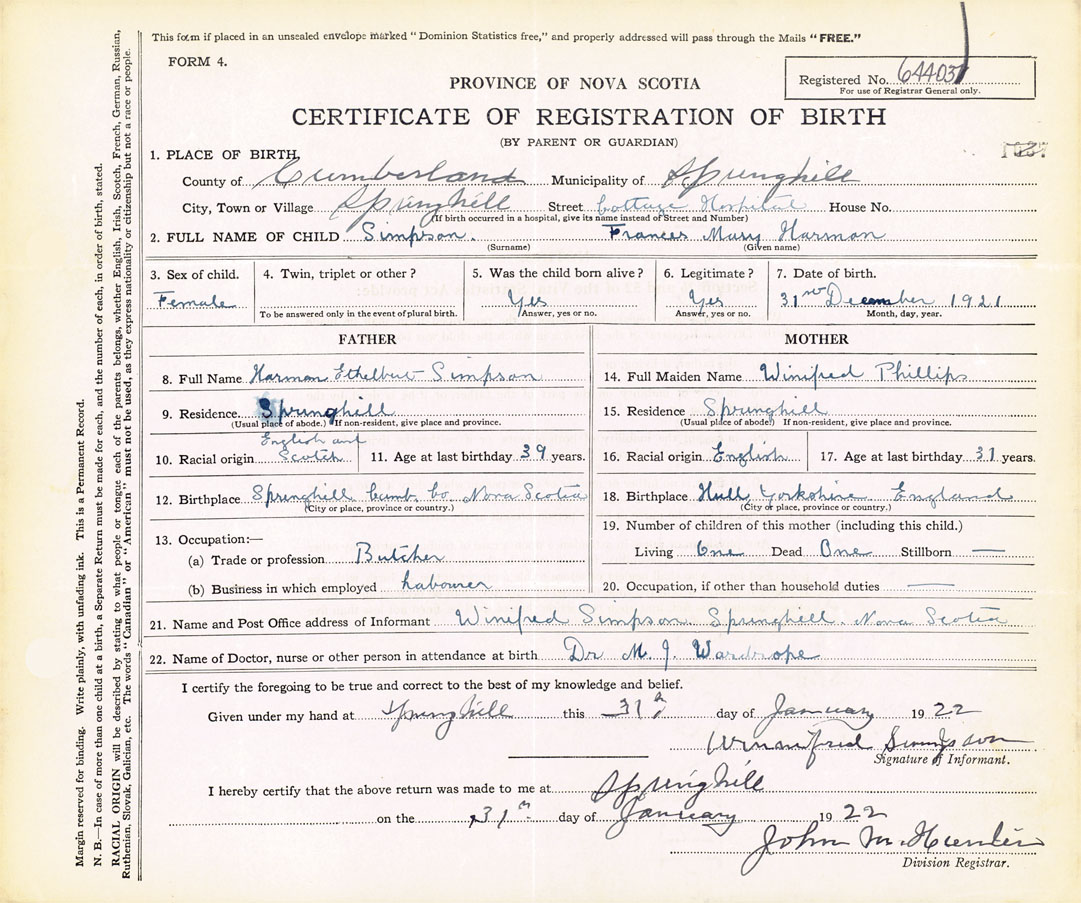 This form if placed in an unsealed envelope marked "Dominion Statistics free," and properly addressed will pass through the Mails "FREE."
FORM 4.
Registered No. 644037
For use of Registrar General only.
PROVINCE OF NOVA SCOTIA
CERTIFICATE OF REGISTRATION OF BIRTH
(BY PARENT OR GUARDIAN)
1. PLACE OF BIRTH
County of Cumberland Municipality of Springhill
City, Town or Village Springhill Street Cottage Hospital House No.
(If birth occurred in a hospital, give its name instead of Street and Number)
2. FULL NAME OF CHILD Simpson. Frances Mary Harmon
(Surname) (Given name)
3. Sex of child. 4. Twin, triplet or other? 5. Was the child born alive? 6. Legitimate? 7. Date of birth.
Female Yes Yes 31st December 1921
To be answered only in the event of plural birth. Answer, yes or no. Answer, yes or no. Month, day, year.
FATHER
8. Full Name Harmon Ethelbut Simpson
9. Residence. Springhill
(Usual place of abode.) If non-resident, give place and province.
English and
10. Racial origin Scotch 11. Age at last birthday 39 years.
12. Birthplace Springhill Cumb. Co. Nova Scotia
(City or place, province or country.)
13. Occupation:—
(a) Trade or profession Butcher
(b) Business in which employed labourer
MOTHER
14. Full Maiden Name Winifred Phillips
15. Residence Springhill
(Usual place of abode) If non-resident, give place and province.
16. Racial origin English 17. Age at last birthday 31 years.
18. Birthplace Hull Yorkshire England
(City or place, province or country.)
19. Number of children of this mother (including this child.)
Living One Dead One Stillborn —
20. Occupation, if other than household duties —
21. Name and Post Office address of Informant Winifred Simpson. Springhill. Nova Scotia
22. Name of Doctor, nurse or other person in attendance at birth Dr M. J. Wardrope
I certify the foregoing to be true and correct to the best of my knowledge and belief.
Given under my hand at Springhill this 31st day of January 1922
Winnifred Simpson
Signature of Informant.
I hereby certify that the above return was made to me at Springhill
on the 31st day of January 1922
John M. Hunter
Division Registrar.
Margin reserved for binding. Write plainly, with unfading ink. This is a Permanent Record.
N. B.—In case of more than one child at a birth, a Separate Return must be made for each, and the number of each, in order of birth, stated.
RACIAL ORIGIN will be described by stating to what people or tongue each of the parents belongs, whether English, Irish, Scotch, French, German, Russian,
Ruthenian, Slovak, Galician, etc. The words "Canadian" or "American" must not be used, as they express nationality or citizenship but not a race or people.